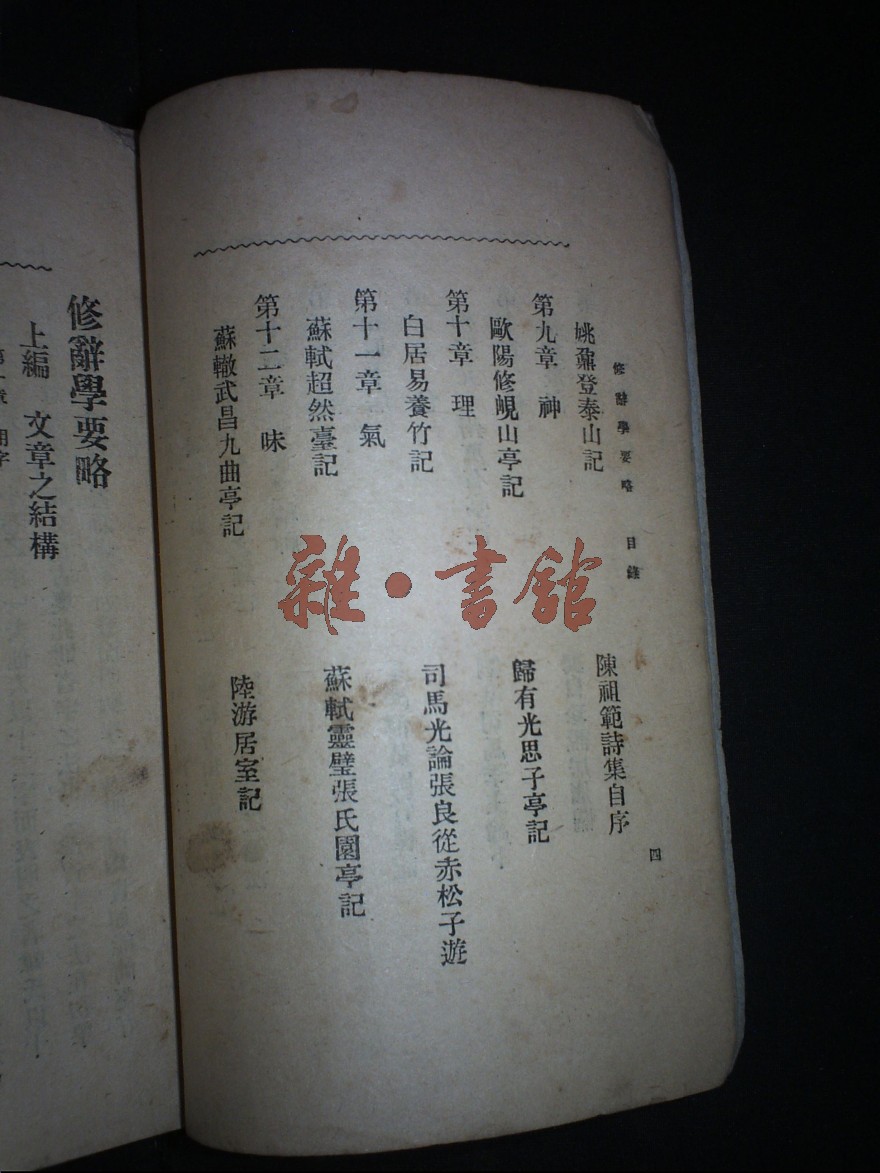 修辭學要略 目錄
四
姚鼐登泰山記
陳祖範詩集自序
第九章 神
歐陽修峴山亭記
歸有光思子亭記
第十章 理
白居易養竹記
司馬光論張良從赤松子遊
第十一章 氣
蘇軾超然臺記
蘇軾靈璧張氏園亭記
第十二章 味
蘇轍武昌九曲亭記
陸游居室記
雜·書館
修辭學要略
上編 文章之結構